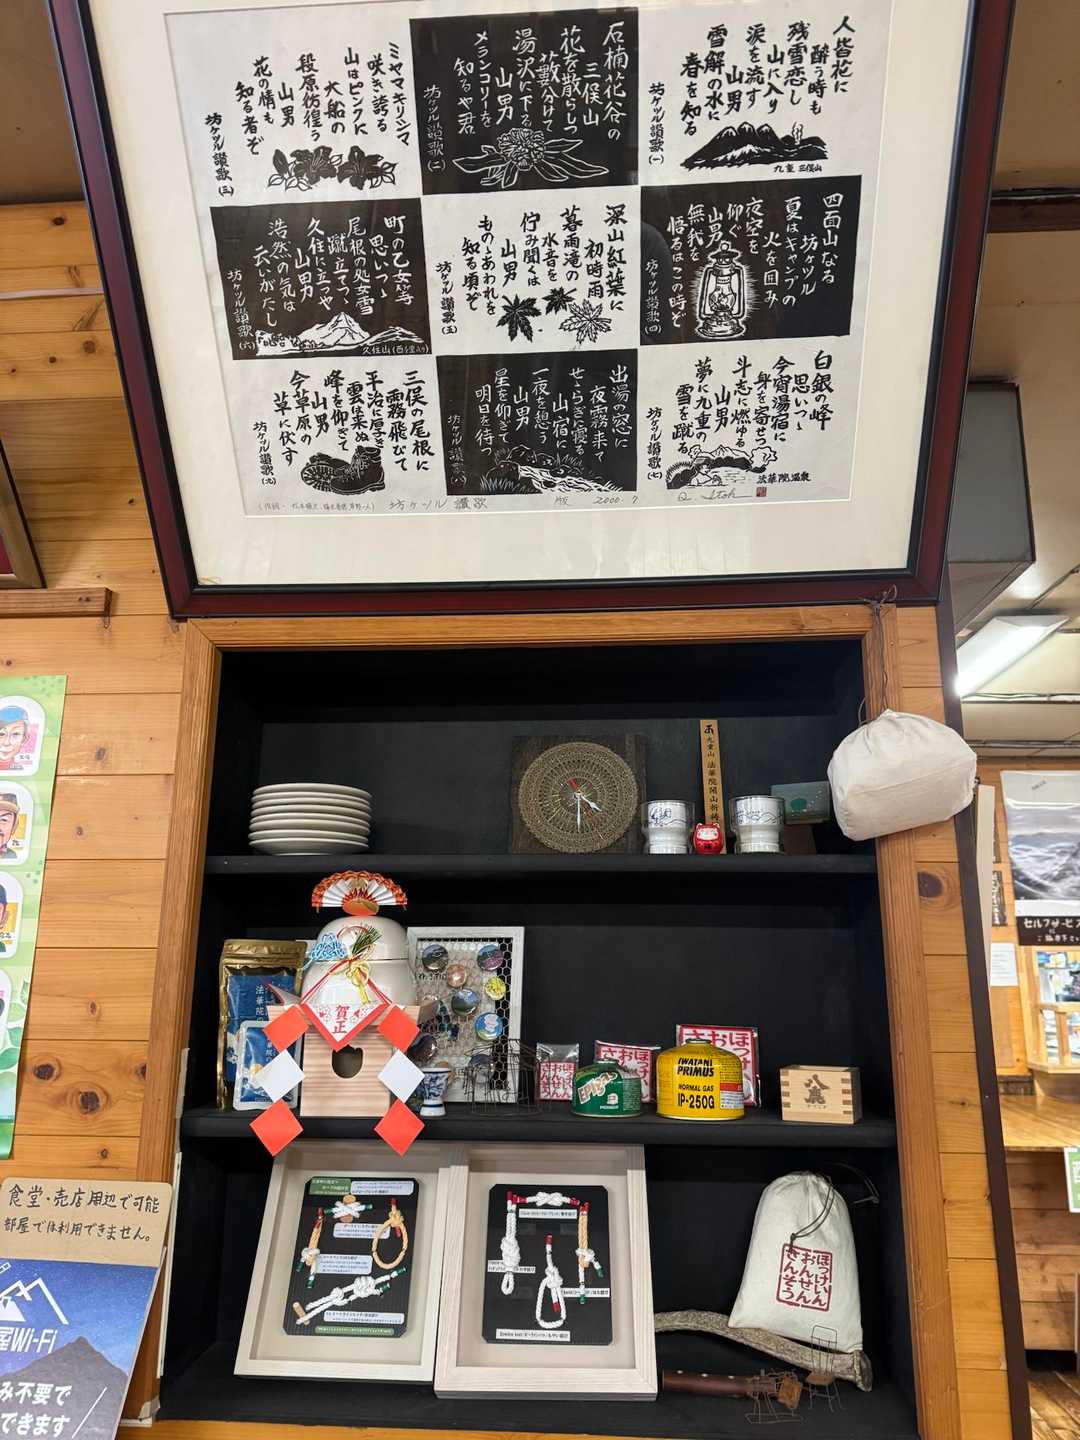 人皆花に
酔う時も
残雪恋し
山に入り
涙を流す
山男
雪解の水に
春を知る
坊ケツル讃歌(一)
九重 三俣山
石楠花谷の
三俣山
花を散らしつ
藪分けて
湯沢に下る
山男
メランコリーを
知るや君
坊ケツル讃歌(二)
ミヤマキリシマ
咲き誇る
山はピンクに
大船の
段原彷徨う
山男
花の情も
知る者ぞ
坊ケツル讃歌(三)
四面山なる
坊ケツル
夏はキャンプの
火を囲み
夜空を
仰ぐ
山男
無我を
悟るはこの時ぞ
坊ケツル讃歌(四)
深山紅葉に
初時雨
暮雨滝の
水音を
佇み聞くは
山男
ものゝあわれを
知る頃ぞ
坊ケツル讃歌(五)
町の乙女等
思いつゝ
尾根の処女雪
蹴立てつゝ
久住に立つや
山男
浩然の気は
云いがたし
坊ケツル讃歌(六)
白銀の峰
思いつゝ
今宵湯宿に
身を寄せつ
斗志に燃ゆる
山男
夢に九重の
雪を蹴る
坊ケツル讃歌(七)
法華院温泉
出湯の窓に
夜霧来て
せゝらぎに寝る
山宿に
一夜を憩う
山男
星を仰ぎて
明日を待つ
坊ケツル讃歌(八)
三俣の尾根に
霧飛びて
平治に厚き
雲は来ぬ
峰を仰ぎて
山男
今草原の
草に伏す
坊ケツル讃歌(九)
坊ケツル 讃歌
版 2000.7
Q. Itoh
九重山 法華院開山祈祷
法華院
賀正
EPIgas
IWATANI
PRIMUS
NORMAL GAS
IP-250G
八鹿
ほっけいん
おんせん
さんそう
セルフサービス
食堂・売店周辺で可能
部屋では利用できません。
屋Wi-Fi
み不要で
できます